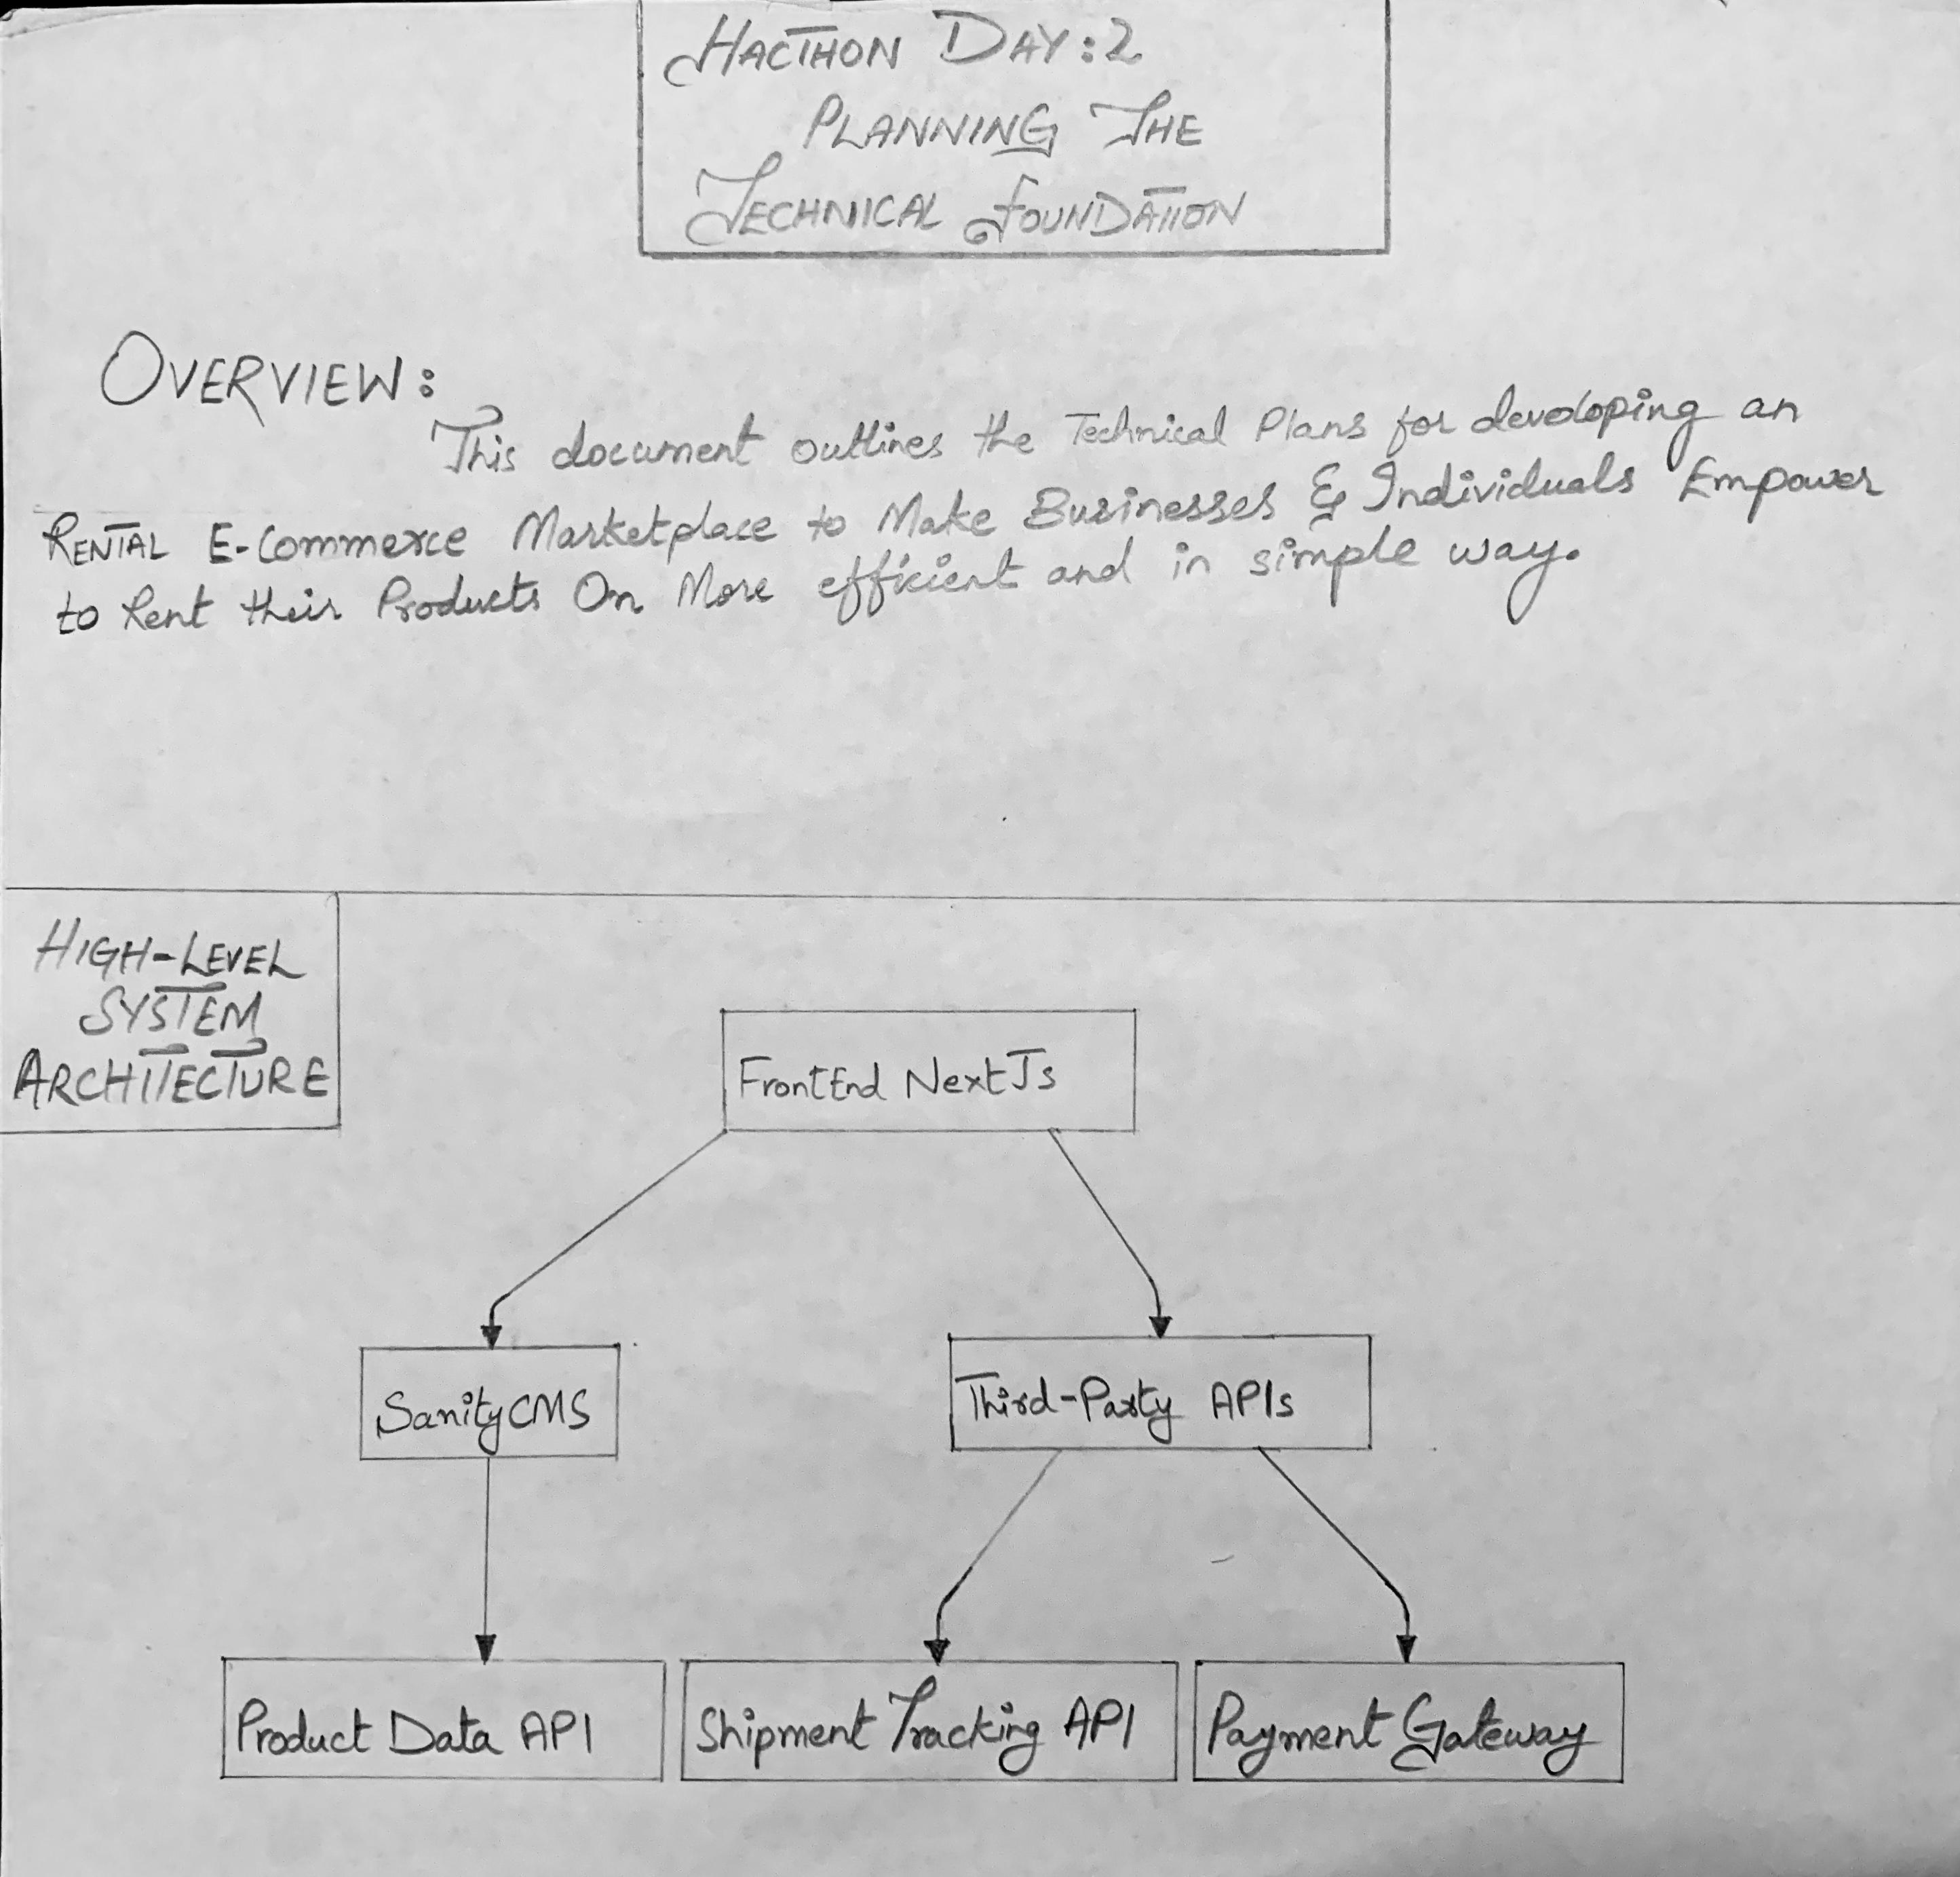 HACTHON DAY:2
PLANNING THE
TECHNICAL FOUNDATION
OVERVIEW:
This document outlines the Technical Plans for developing an
RENTAL E-Commerce Marketplace to Make Businesses & Individuals Empower
to Rent their Products On More efficient and in simple way.
HIGH-LEVEL
SYSTEM
ARCHITECTURE
FrontEnd NextJs
SanityCMS
Third-Party APIs
Product Data API
Shipment Tracking API
Payment Gateway